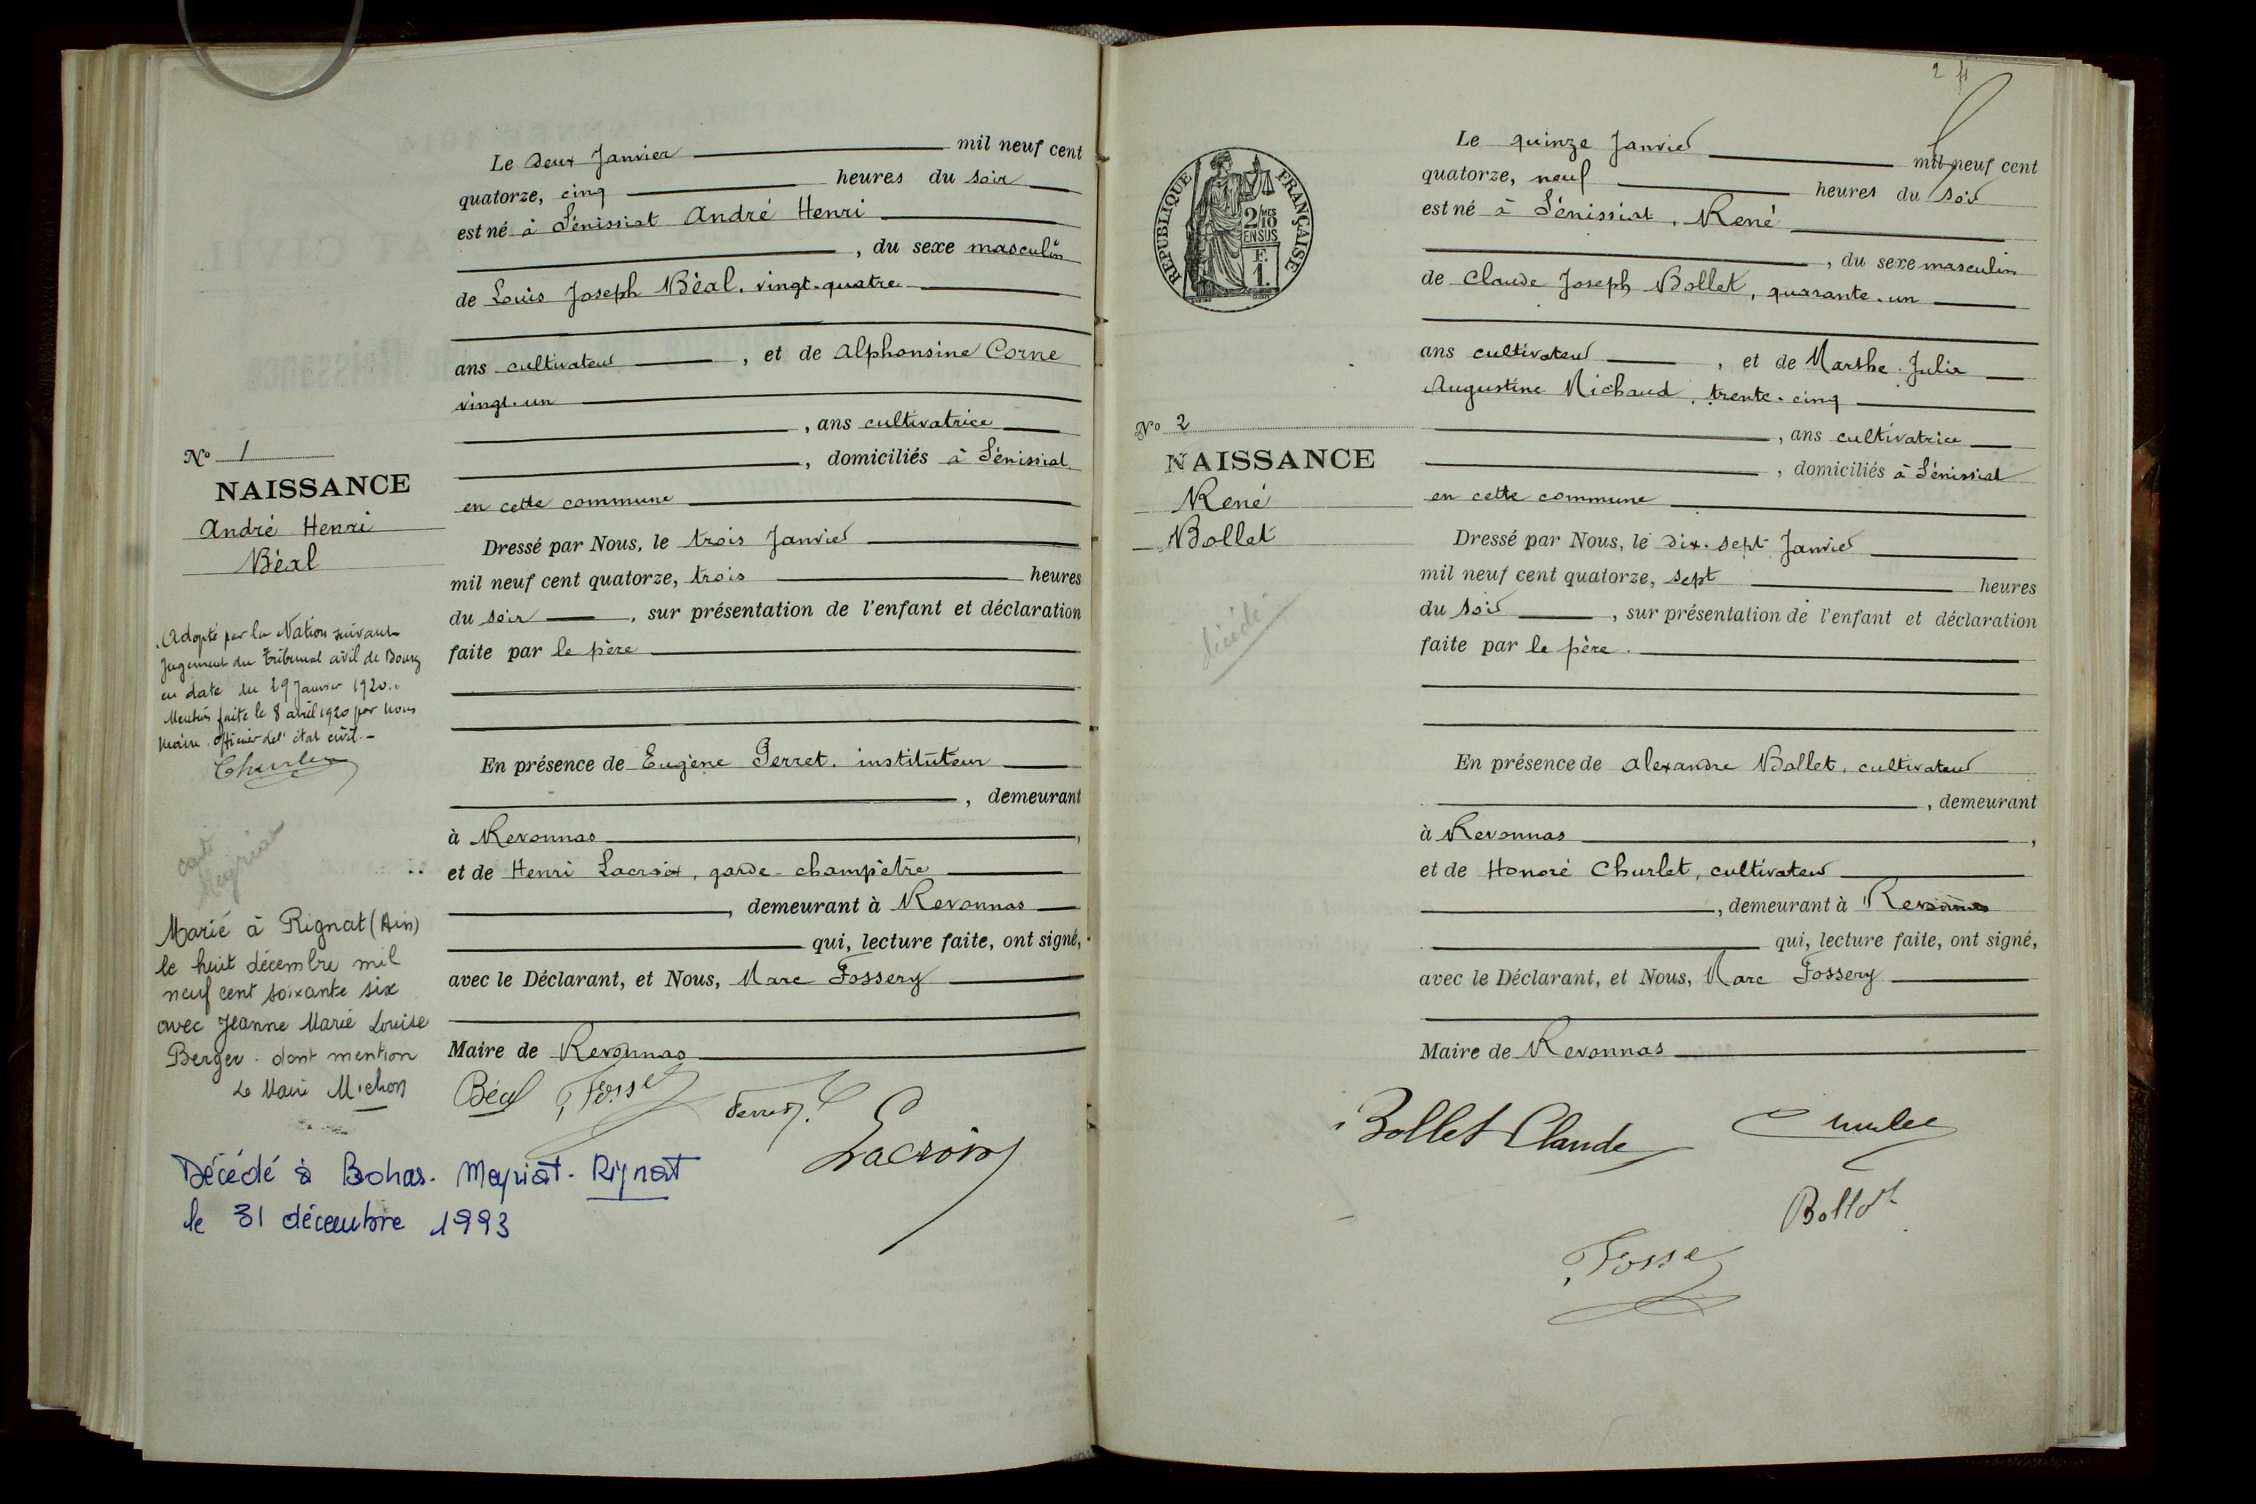 N° 1
NAISSANCE
André Henri
Béal
Adopté par la Nation suivant
jugement du Tribunal civil de Bourg
en date du 29 Janvier 1920.
Mention faite le 8 avril 1920 par nous
Maire officier de l'état civil.-
Churlet
Marié à Rignat (Ain)
le huit décembre mil
neuf cent soixante six
avec Jeanne Marie Louise
Berger. dont mention
Le Maire Michon
Le deux Janvier mil neuf cent
quatorze, cinq heures du soir
est né à Sénissiat André Henri
, du sexe masculin
de Louis Joseph Béal. vingt-quatre
ans cultivateur , et de Alphonsine Corne
vingt-un
, ans cultivatrice
, domiciliés à Sénissiat
en cette commune
Dressé par Nous, le trois Janvier
mil neuf cent quatorze, trois heures
du soir , sur présentation de l'enfant et déclaration
faite par le père
En présence de Eugène Perret. instituteur
, demeurant
à Revonnas ,
et de Henri Lacroix, garde-champêtre
, demeurant à Revonnas
qui, lecture faite, ont signé,
avec le Déclarant, et Nous, Marc Fossery
Maire de Revonnas
Béal Fossery Perret
Lacroix
Décédé à Bohas. Meyriat. Rignat
le 31 décembre 1993
2
REPUBLIQUE FRANÇAISE
2/10 MES
EN SUS
F.
1.
N° 2
NAISSANCE
René
Bollet
décédé
Le quinze Janvier mil neuf cent
quatorze, neuf heures du soir
est né à Sénissiat. René
, du sexe masculin
de Claude Joseph Bollet, quarante-un
ans cultivateur , et de Marthe Julie
Augustine Michaud, trente-cinq
, ans cultivatrice
, domiciliés à Sénissiat
en cette commune
Dressé par Nous, le dix-sept Janvier
mil neuf cent quatorze, sept heures
du soir , sur présentation de l'enfant et déclaration
faite par le père.
En présence de Alexandre Bollet, cultivateur
, demeurant
à Revonnas ,
et de Honoré Churlet, cultivateur
, demeurant à Revonnas
qui, lecture faite, ont signé,
avec le Déclarant, et Nous, Marc Fossery
Maire de Revonnas
Bollet Claude Churlet
Bollet
Fossery